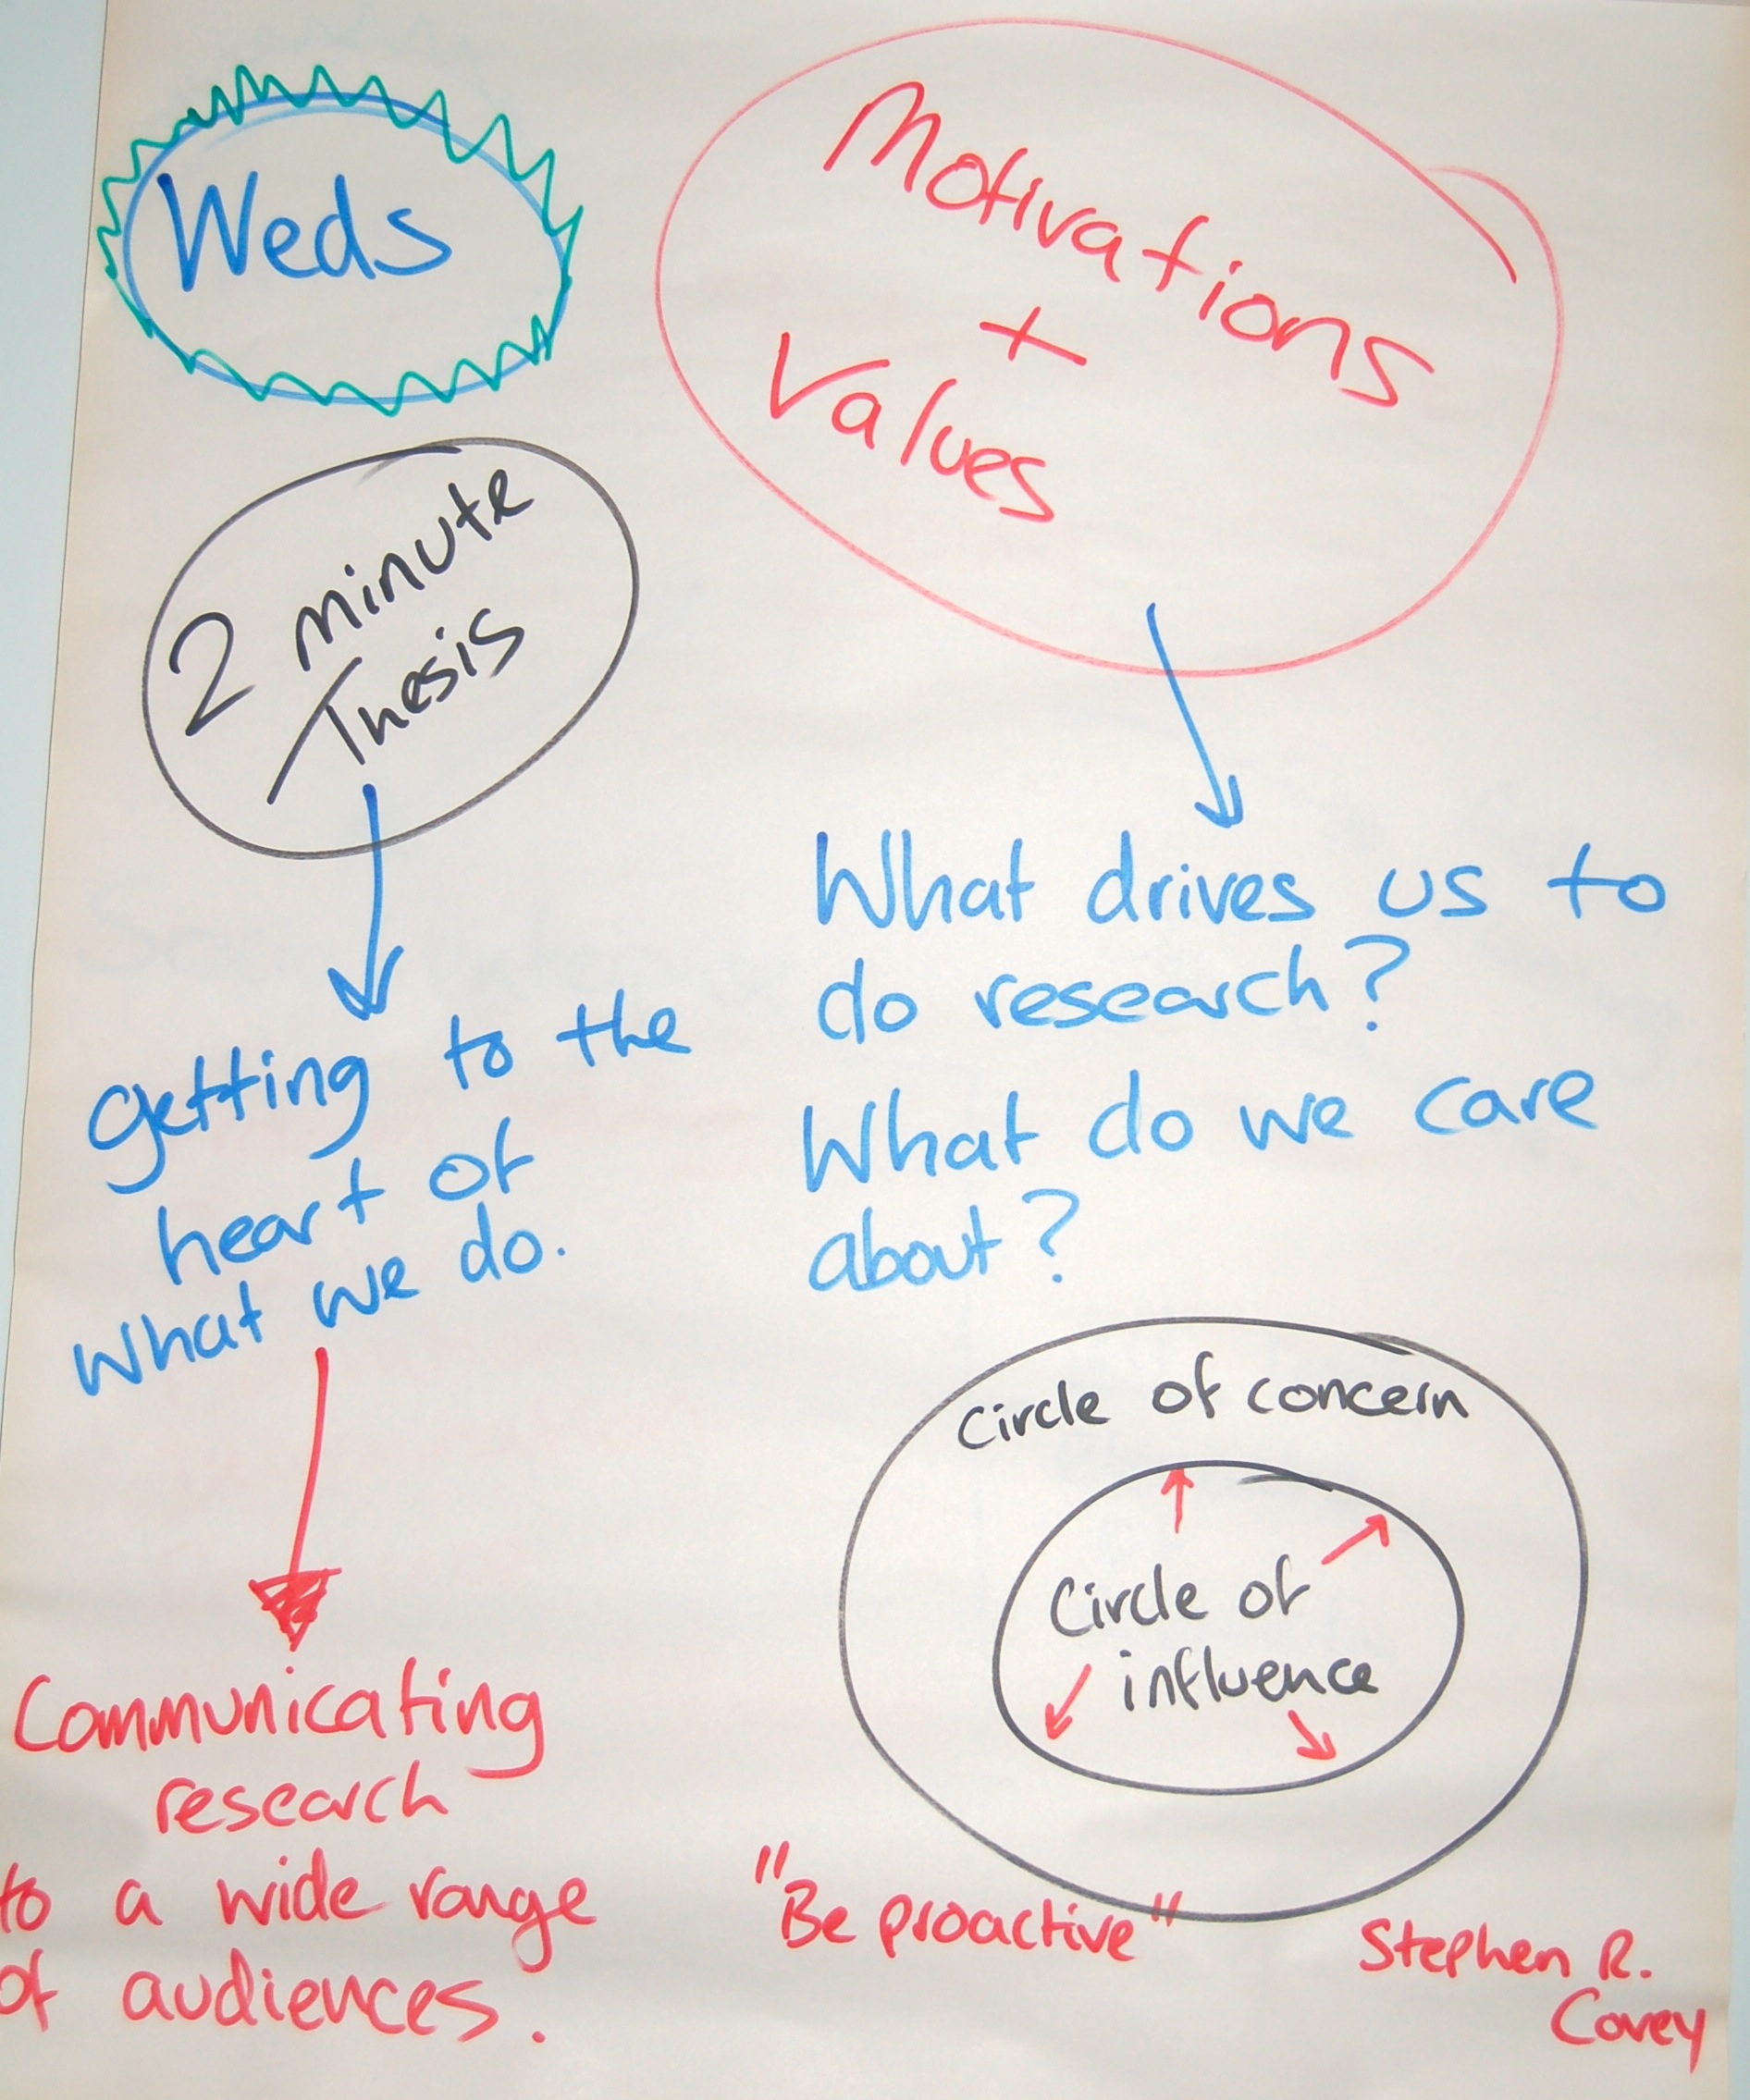 Weds
2 minute
Thesis
getting to the
heart of
what we do.
Communicating
research
to a wide range
of audiences.
Motivations
+
Values
What drives us to
do research?
What do we care
about?
Circle of concern
Circle of
influence
"Be proactive"
Stephen R.
Covey